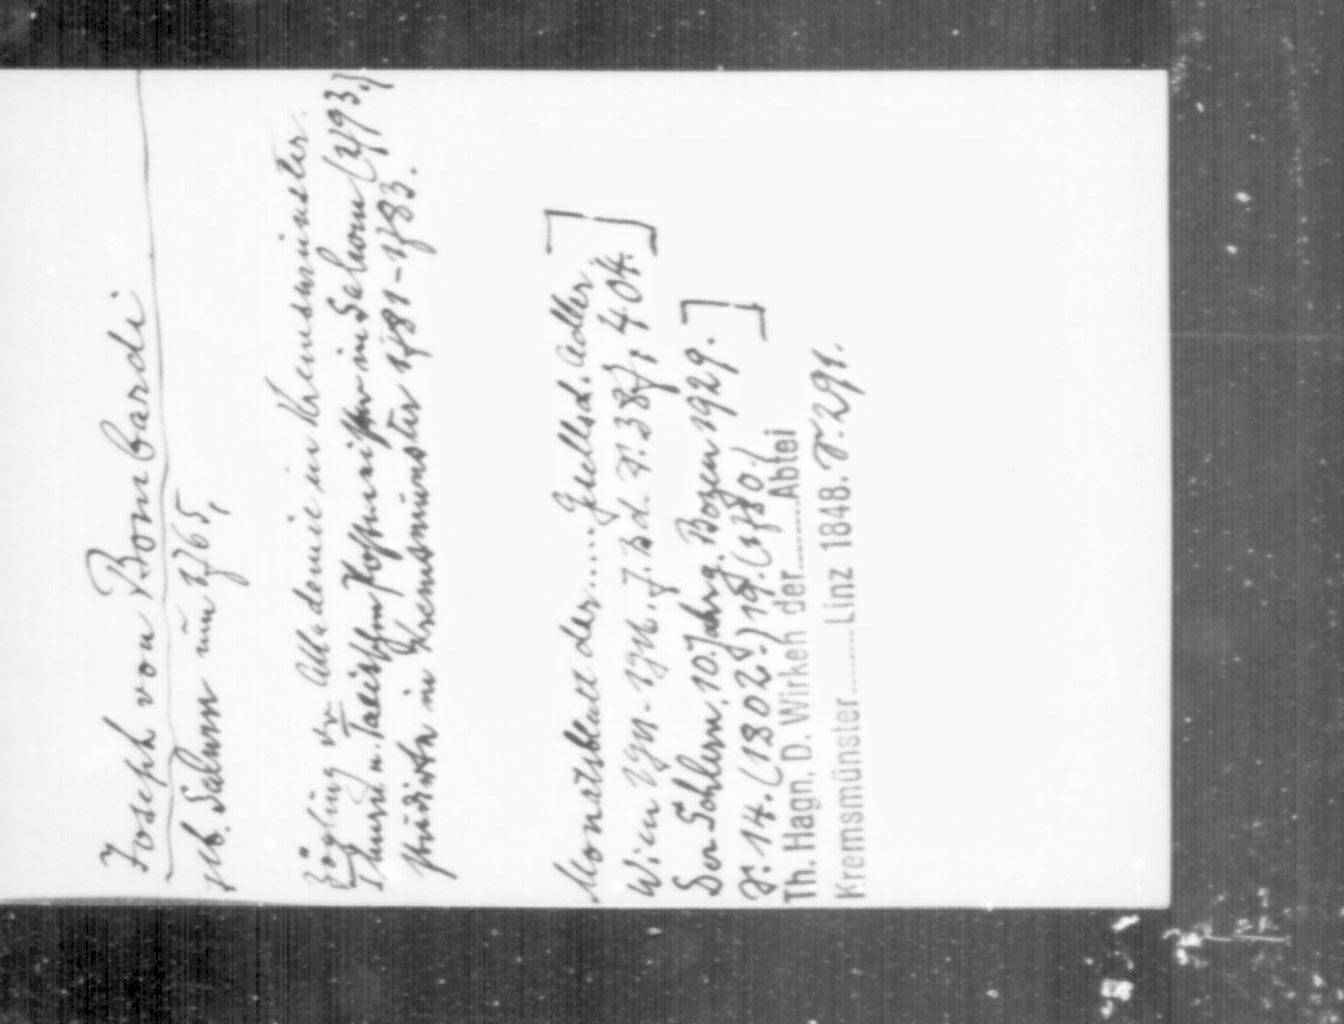 Joseph von Bombardi
geb. Salurn um 1765,
Zögling der Akademie in Kremsmünster.
Thurn u. Taxis'schen Hofmeister in Salurn (1793,)
studierte in Kremsmünster 1781-1783.
Monatsblatt der..... Gesellsch. Adler
Wien 1911-1916. 7. Bd. S. 387, 404.
Der Schlern, 10. Jahrg. Bozen 1929.
S. 14. (1802.) 19. (1780.)
Th. Hagn. D. Wirken der........Abtei
Kremsmünster........Linz 1848. S. 291.